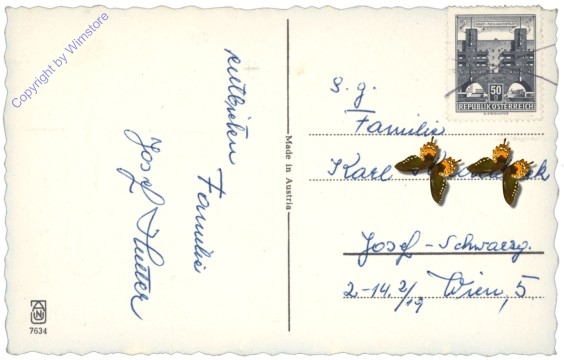 Copyright by Wimstore
entbieten
Familie
Josef Hutter
Made in Austria
7634
50
REPUBLIK ÖSTERREICH
S. g.
Familie
Karl
Josef-Schwarzg.
2-14. 2/19 Wien, 5